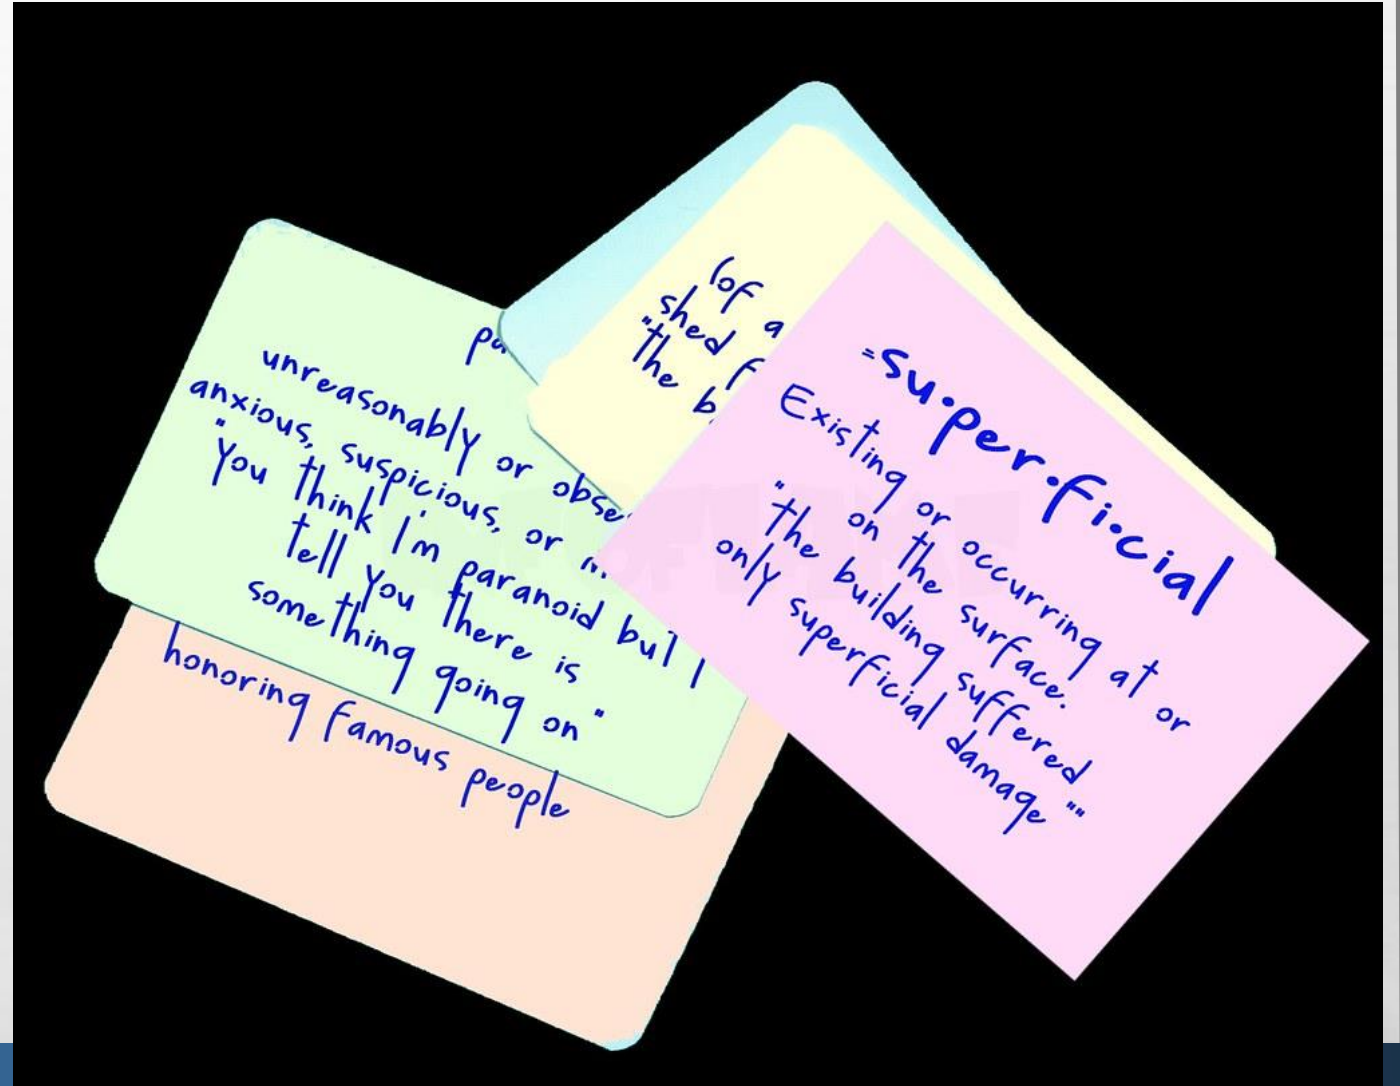 unreasonably or
anxious, suspicious, or
"You think I'm paranoid but I
tell you there is
something going on"
honoring famous people
(of a
shed
"the
"su•per•fi•cial
Existing or occurring at or
on the surface.
"the building suffered
only superficial damage""